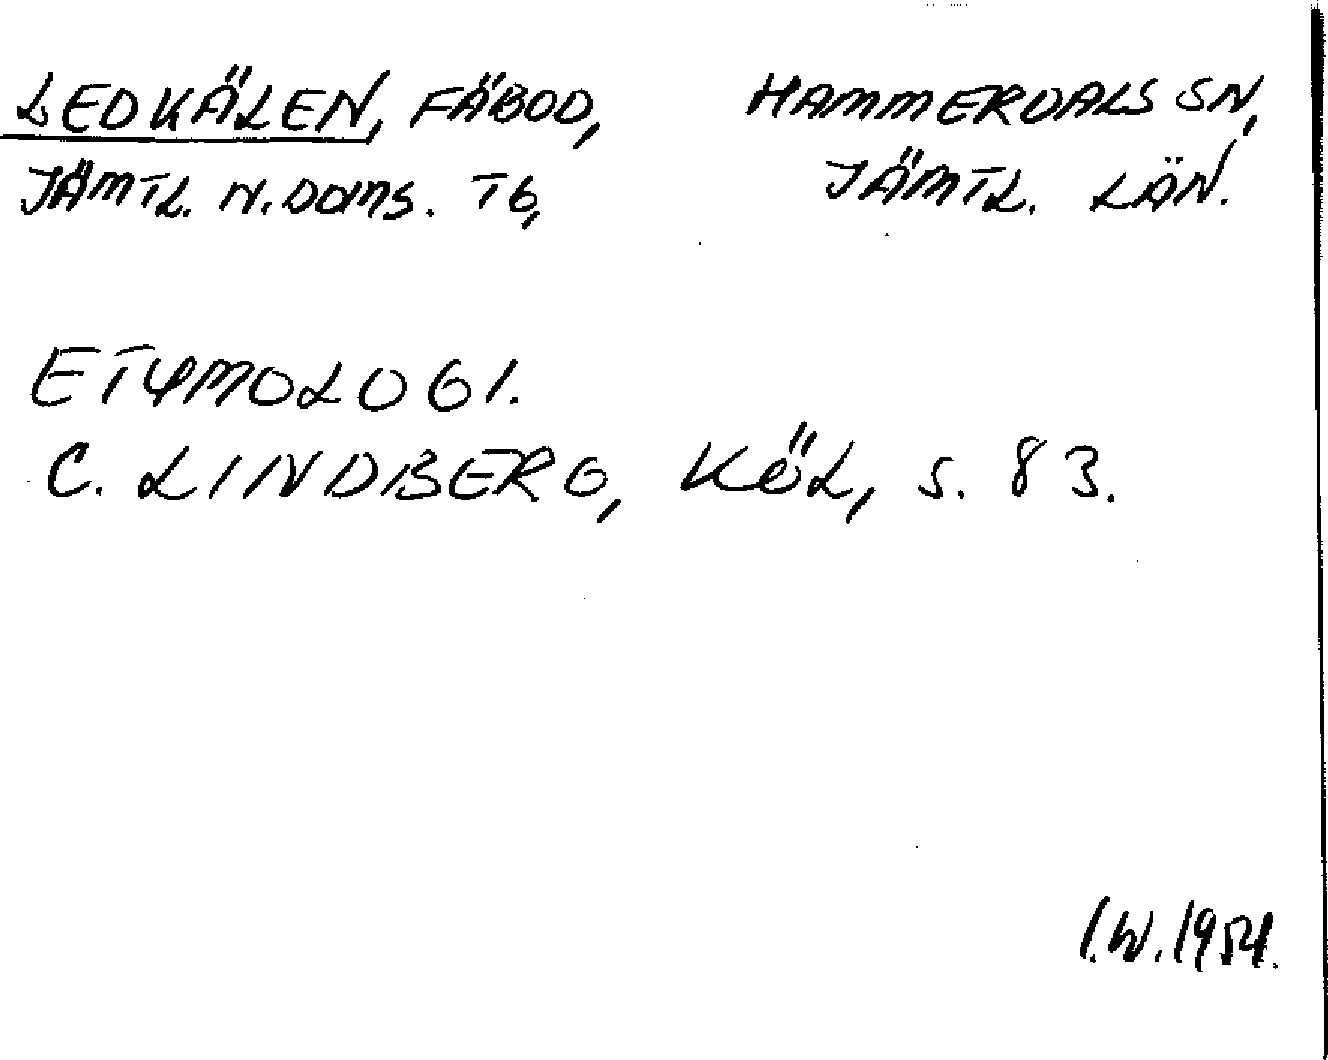 LEDKÄLEN, FÄBOD, HAMMERDALS SN,
JÄMTL. N. DOMS. TG, JÄMTL. LÄN.
ETYMOLOGI.
C. LINDBERG, KÖL, S. 83.
I.W. 1954.